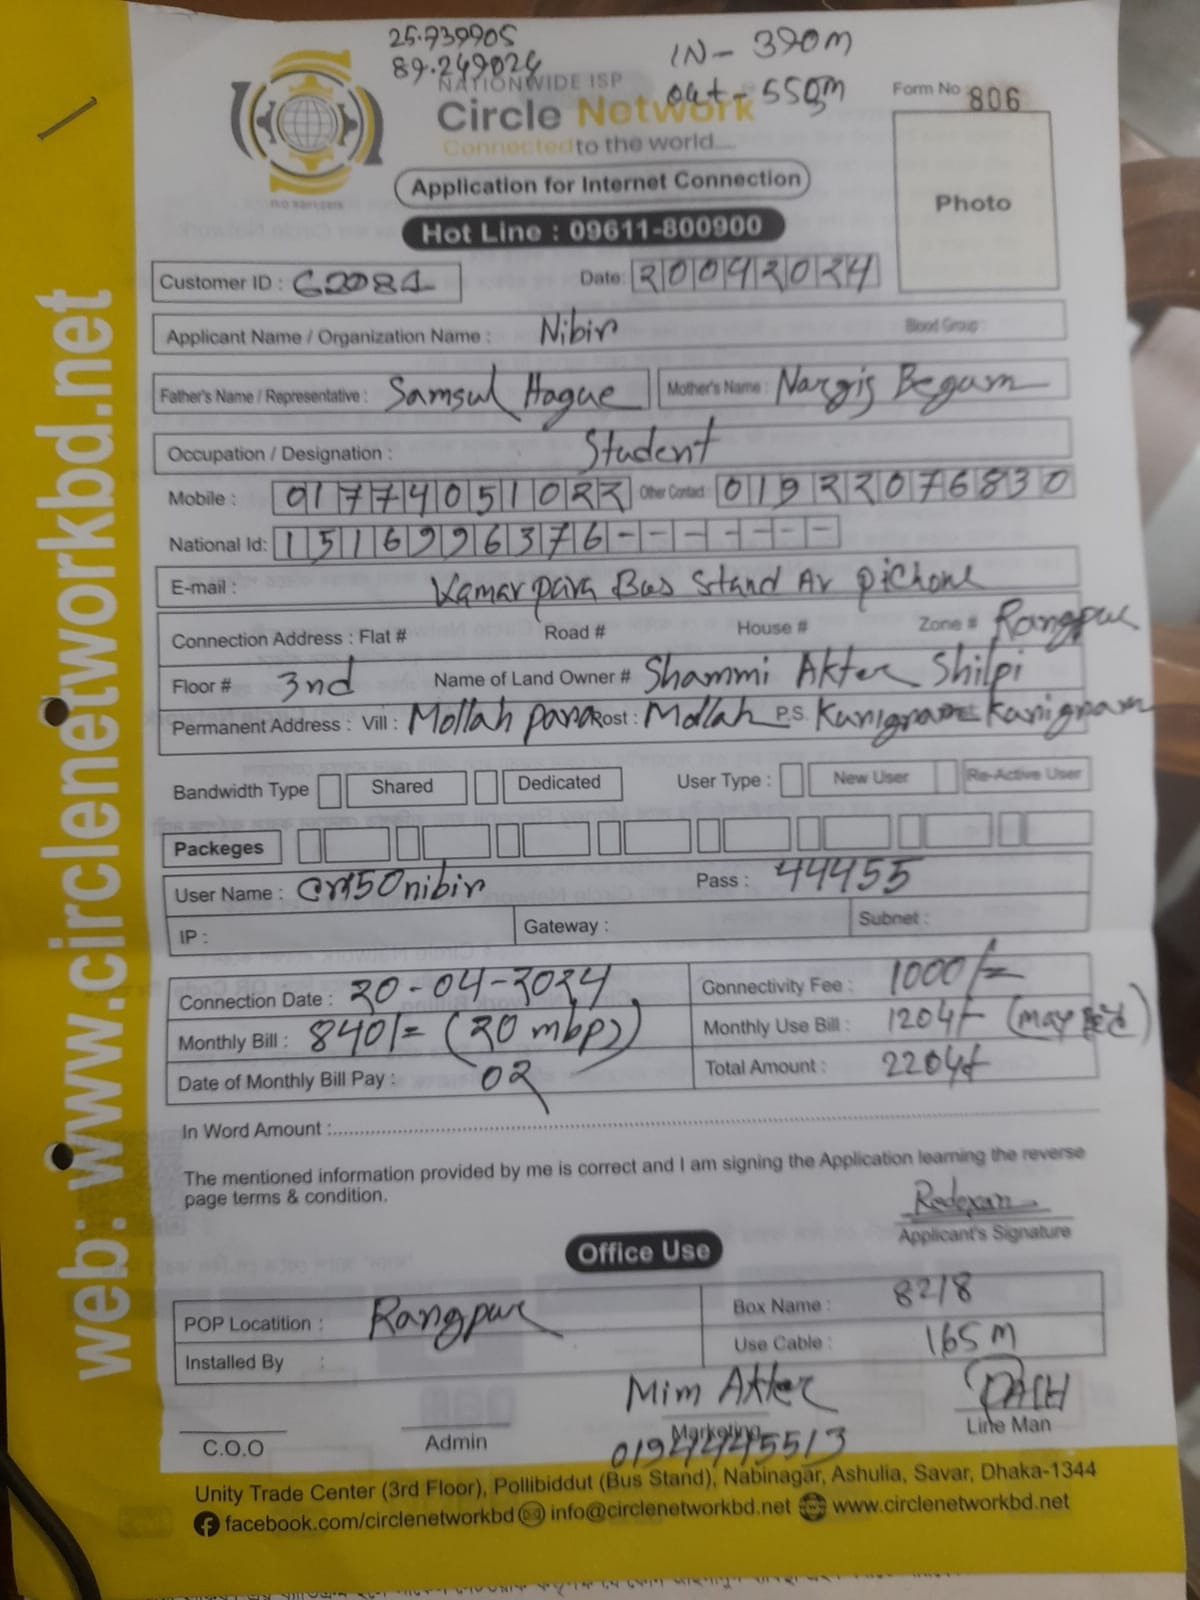 25.739905
89.249024
IN - 390m
out - 550m
NATIONWIDE ISP
Circle Network
Connected to the world....
Form No 806
Photo
Application for Internet Connection
Hot Line : 09611-800900
Customer ID : C2081
Date: 20042024
Applicant Name / Organization Name : Nibir
Blood Group :
Father's Name / Representative : Samsul Haque
Mother's Name : Nargis Begum
Occupation / Designation : Student
Mobile : 01774051022 Other Contact : 01922076830
National Id: 1516996376-------
E-mail : Kamarpara Bus Stand Ar pichone
Connection Address : Flat # Road # House # Zone # Rangpur
Floor # 3nd Name of Land Owner # Shammi Akter Shilpi
Permanent Address : Vill : Mollah para Post : Mollah P.S. Kurigram Kurigram
Bandwidth Type Shared Dedicated User Type : New User Re-Active User
Packeges
User Name : nibir Pass : 44455
IP : Gateway : Subnet :
Connection Date : 20-04-2024 Connectivity Fee : 1000/=
Monthly Bill : 840/= (20 mbps) Monthly Use Bill : 1204/- (may
Date of Monthly Bill Pay : 02 Total Amount : 2204/-
In Word Amount :
The mentioned information provided by me is correct and I am signing the Application learning the reverse
page terms & condition.
Applicant's Signature
Office Use
POP Locatition : Rangpur Box Name : 8218
Installed By : Use Cable : 165 m
Mim Akter
C.O.O Admin Marketing Line Man
01944445513
Unity Trade Center (3rd Floor), Pollibiddut (Bus Stand), Nabinagar, Ashulia, Savar, Dhaka-1344
facebook.com/circlenetworkbd info@circlenetworkbd.net www.circlenetworkbd.net
web: www.circlenetworkbd.net